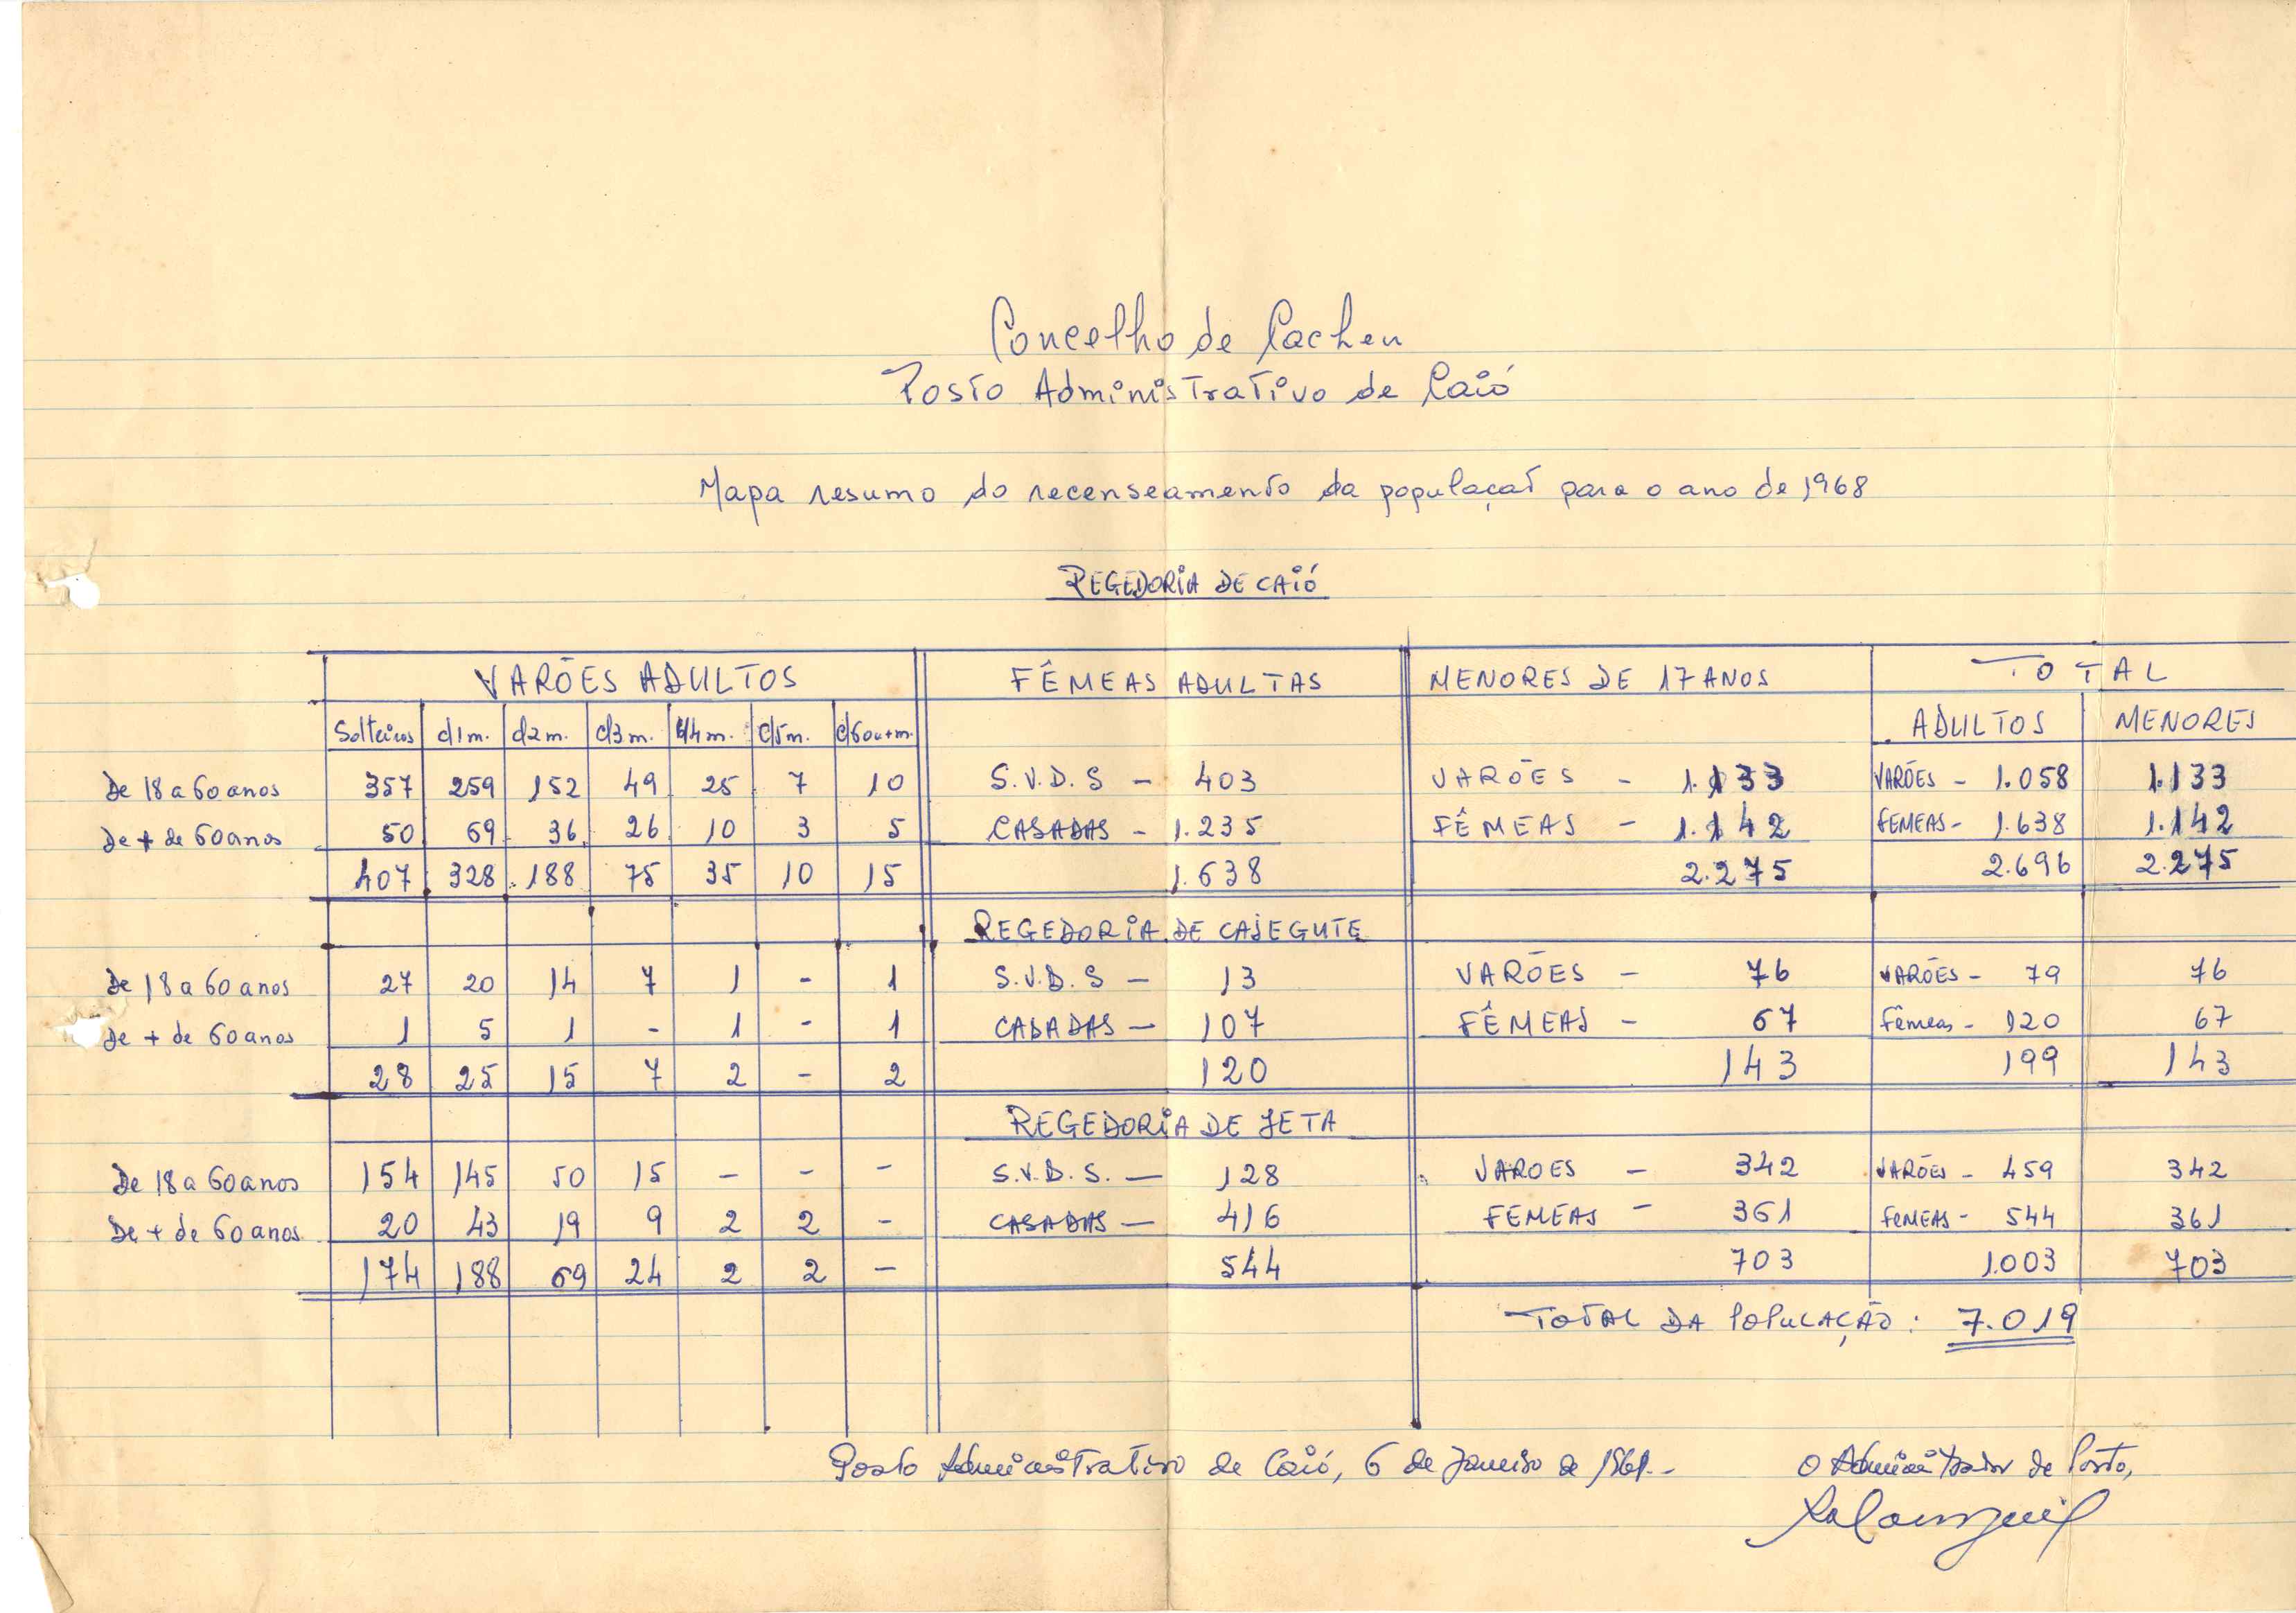 Concelho de Cacheu
Posto Administrativo de Caió
Mapa resumo do recenseamento da população para o ano de 1968
REGEDORIA DE CAIÓ
VARÕES ADULTOS FÊMEAS ADULTAS MENORES DE 17 ANOS TOTAL
Solteiros c/1m. c/2m. c/3m. c/4m. c/5m. c/6ou+m. ADULTOS MENORES
De 18 a 60 anos 357 259 152 49 25 7 10 S.V.D.S - 403 VARÕES - 1.133 VARÕES - 1.058 1.133
De + de 60 anos 50 69 36 26 10 3 5 CASADAS - 1.235 FÊMEAS - 1.142 FEMEAS - 1.638 1.142
407 328 188 75 35 10 15 1.638 2.275 2.696 2.275
REGEDORIA DE CAIEGUTE
De 18 a 60 anos 27 20 14 7 1 - 1 S.V.D.S - 13 VARÕES - 76 VARÕES - 79 76
De + de 60 anos 1 5 1 - 1 - 1 CASADAS - 107 FÊMEAS - 67 Fêmeas - 120 67
28 25 15 7 2 - 2 120 143 199 143
REGEDORIA DE JETA
De 18 a 60 anos 154 145 50 15 - - - S.V.D.S. - 128 VAROES - 342 VARÕES - 459 342
De + de 60 anos 20 43 19 9 2 2 - CASADAS - 416 FEMEAS - 361 FEMEAS - 544 361
174 188 69 24 2 2 - 544 703 1.003 703
TOTAL DA POPULAÇÃO : 7.019
Posto Administrativo de Caió, 6 de Janeiro de
O Administrador de Posto,